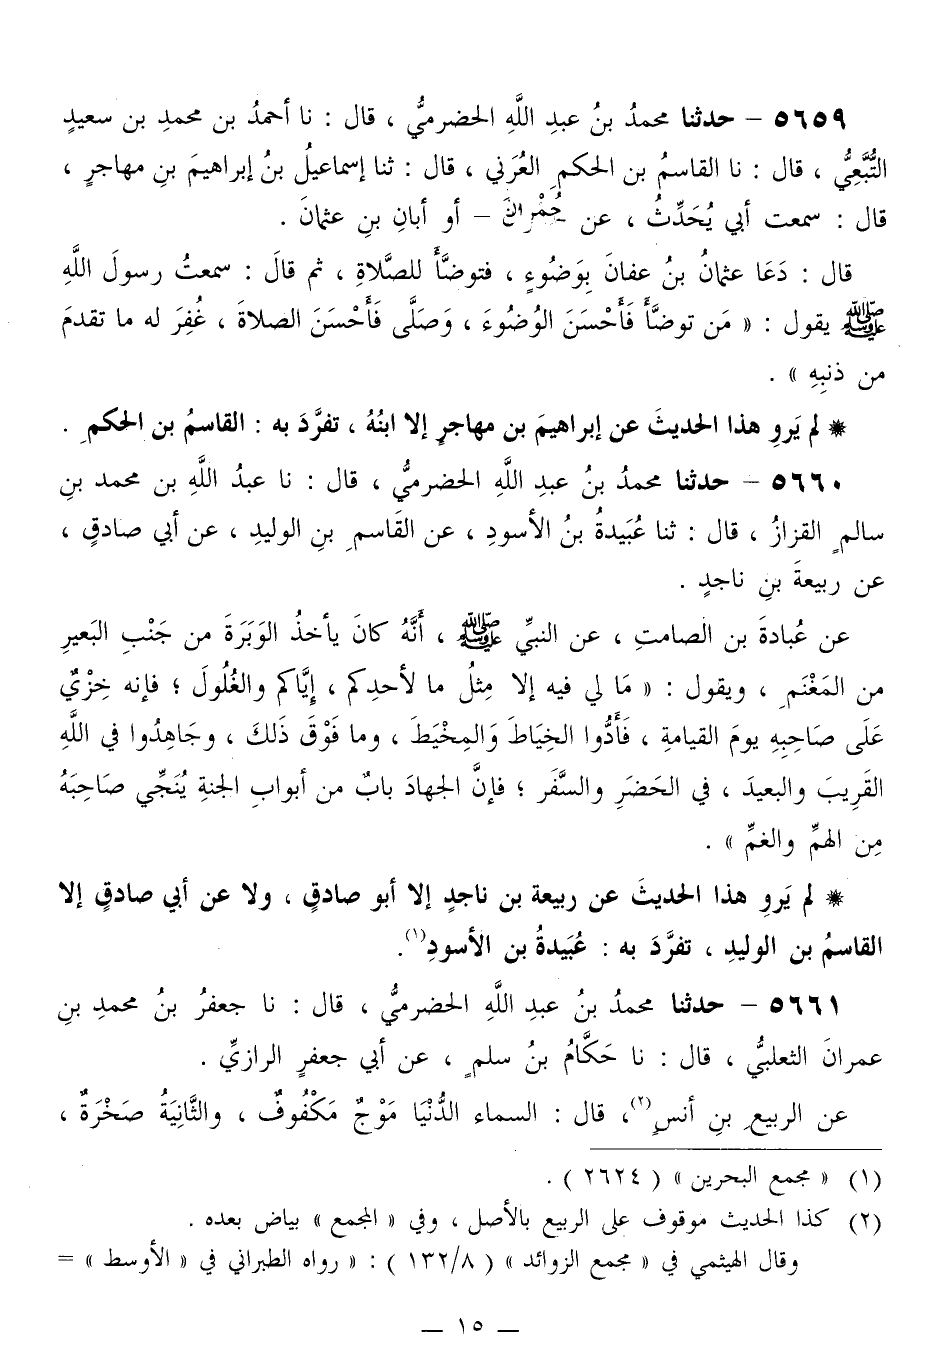 ٥٦٥٩ – حدثنا محمدُ بنُ عبدِ اللَّهِ الحضرميُّ ، قال : نا أحمدُ بن محمدِ بن سعيدٍ
التُّبَّعِيُّ ، قال : نا القاسمُ بن الحكمِ العُرَني ، قال : ثنا إسماعيلُ بنُ إبراهيمَ بنِ مهاجرٍ ،
قال : سمعت أبي يُحَدِّثُ ، عن حُمْرانَ – أو أبانِ بنِ عثمانَ .
قال : دَعَا عثمانُ بنُ عفانَ بِوَضُوءٍ ، فتوضَّأَ للصَّلاةِ ، ثم قالَ : سمعتُ رسولَ اللَّهِ
ﷺ يقول : « مَن توضَّأَ فَأَحْسَنَ الوُضُوءَ ، وَصَلَّى فَأَحْسَنَ الصلاةَ ، غُفِرَ له ما تقدمَ
من ذنبِهِ » .
* لم يَروِ هذا الحديثَ عن إبراهيمَ بن مهاجرٍ إلا ابنُهُ ، تفرَّدَ به : القاسمُ بن الحكمِ .
٥٦٦٠ – حدثنا محمدُ بنُ عبدِ اللَّهِ الحضرميُّ ، قال : نا عبدُ اللَّهِ بن محمد بنِ
سالمٍ القزازُ ، قال : ثنا عُبَيدةُ بنُ الأسودِ ، عن القَاسمِ بنِ الوليدِ ، عن أبي صادقٍ ،
عن ربيعةَ بنِ ناجدٍ .
عن عُبادةَ بن الصامتِ ، عن النبيِّ ﷺ ، أَنَّهُ كانَ يأخذُ الوَبَرَةَ من جَنْبِ البَعيرِ
من المَغْنَمِ ، ويقول : « مَا لي فيه إلا مِثلُ ما لأحدِكم ، إيَّاكم والغُلُولَ ؛ فإنه خِزْيٌ
عَلَى صَاحِبِهِ يومَ القيامةِ ، فَأَدُّوا الخِيَاطَ وَالمِخْيَطَ ، وما فَوْقَ ذَلكَ ، وجَاهِدُوا في اللَّهِ
القَرِيبَ والبعيدَ ، في الحَضَرِ والسَّفَر ؛ فإنَّ الجهادَ بابٌ من أبوابِ الجنةِ يُنَجِّي صاحِبَهُ
مِن الهمِّ والغمِّ » .
* لم يَروِ هذا الحديثَ عن ربيعة بن ناجدٍ إلا أبو صادقٍ ، ولا عن أبي صادقٍ إلا
القاسمُ بن الوليدِ ، تفرَّدَ به : عُبَيدةُ بن الأسودِ(١).
٥٦٦١ – حدثنا محمدُ بنُ عبدِ اللَّهِ الحضرميُّ ، قال : نا جعفرُ بنُ محمدِ بنِ
عمرانَ الثعلبيُّ ، قال : نا حَكَّامُ بنُ سلمٍ ، عن أبي جعفرٍ الرازيِّ .
عن الربيعِ بنِ أنسٍ(٢)، قال : السماء الدُّنْيَا مَوْجٌ مَكْفُوفٌ ، والثَّانِيَةُ صَخْرَةٌ ،
(١) « مجمع البحرين » ( ٢٦٢٤ ) .
(٢) كذا الحديث موقوف على الربيع بالأصل ، وفي « المجمع » بياض بعده .
وقال الهيثمي في « مجمع الزوائد » ( ١٣٢/٨ ) : « رواه الطبراني في « الأوسط » =
— ١٥ —